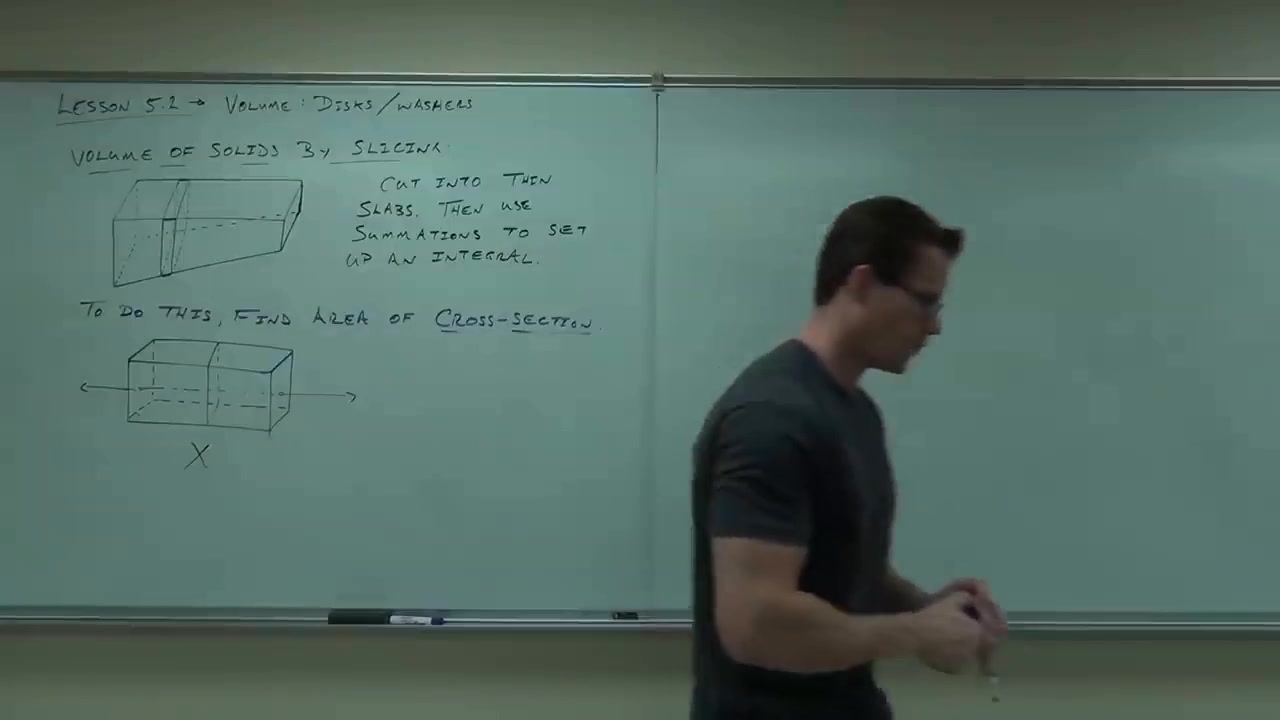 LESSON 5.2 → VOLUME: DISKS/WASHERS
VOLUME OF SOLIDS BY SLICING.
CUT INTO THIN
SLABS. THEN USE
SUMMATIONS TO SET
UP AN INTEGRAL.
TO DO THIS, FIND AREA OF CROSS-SECTION.
X